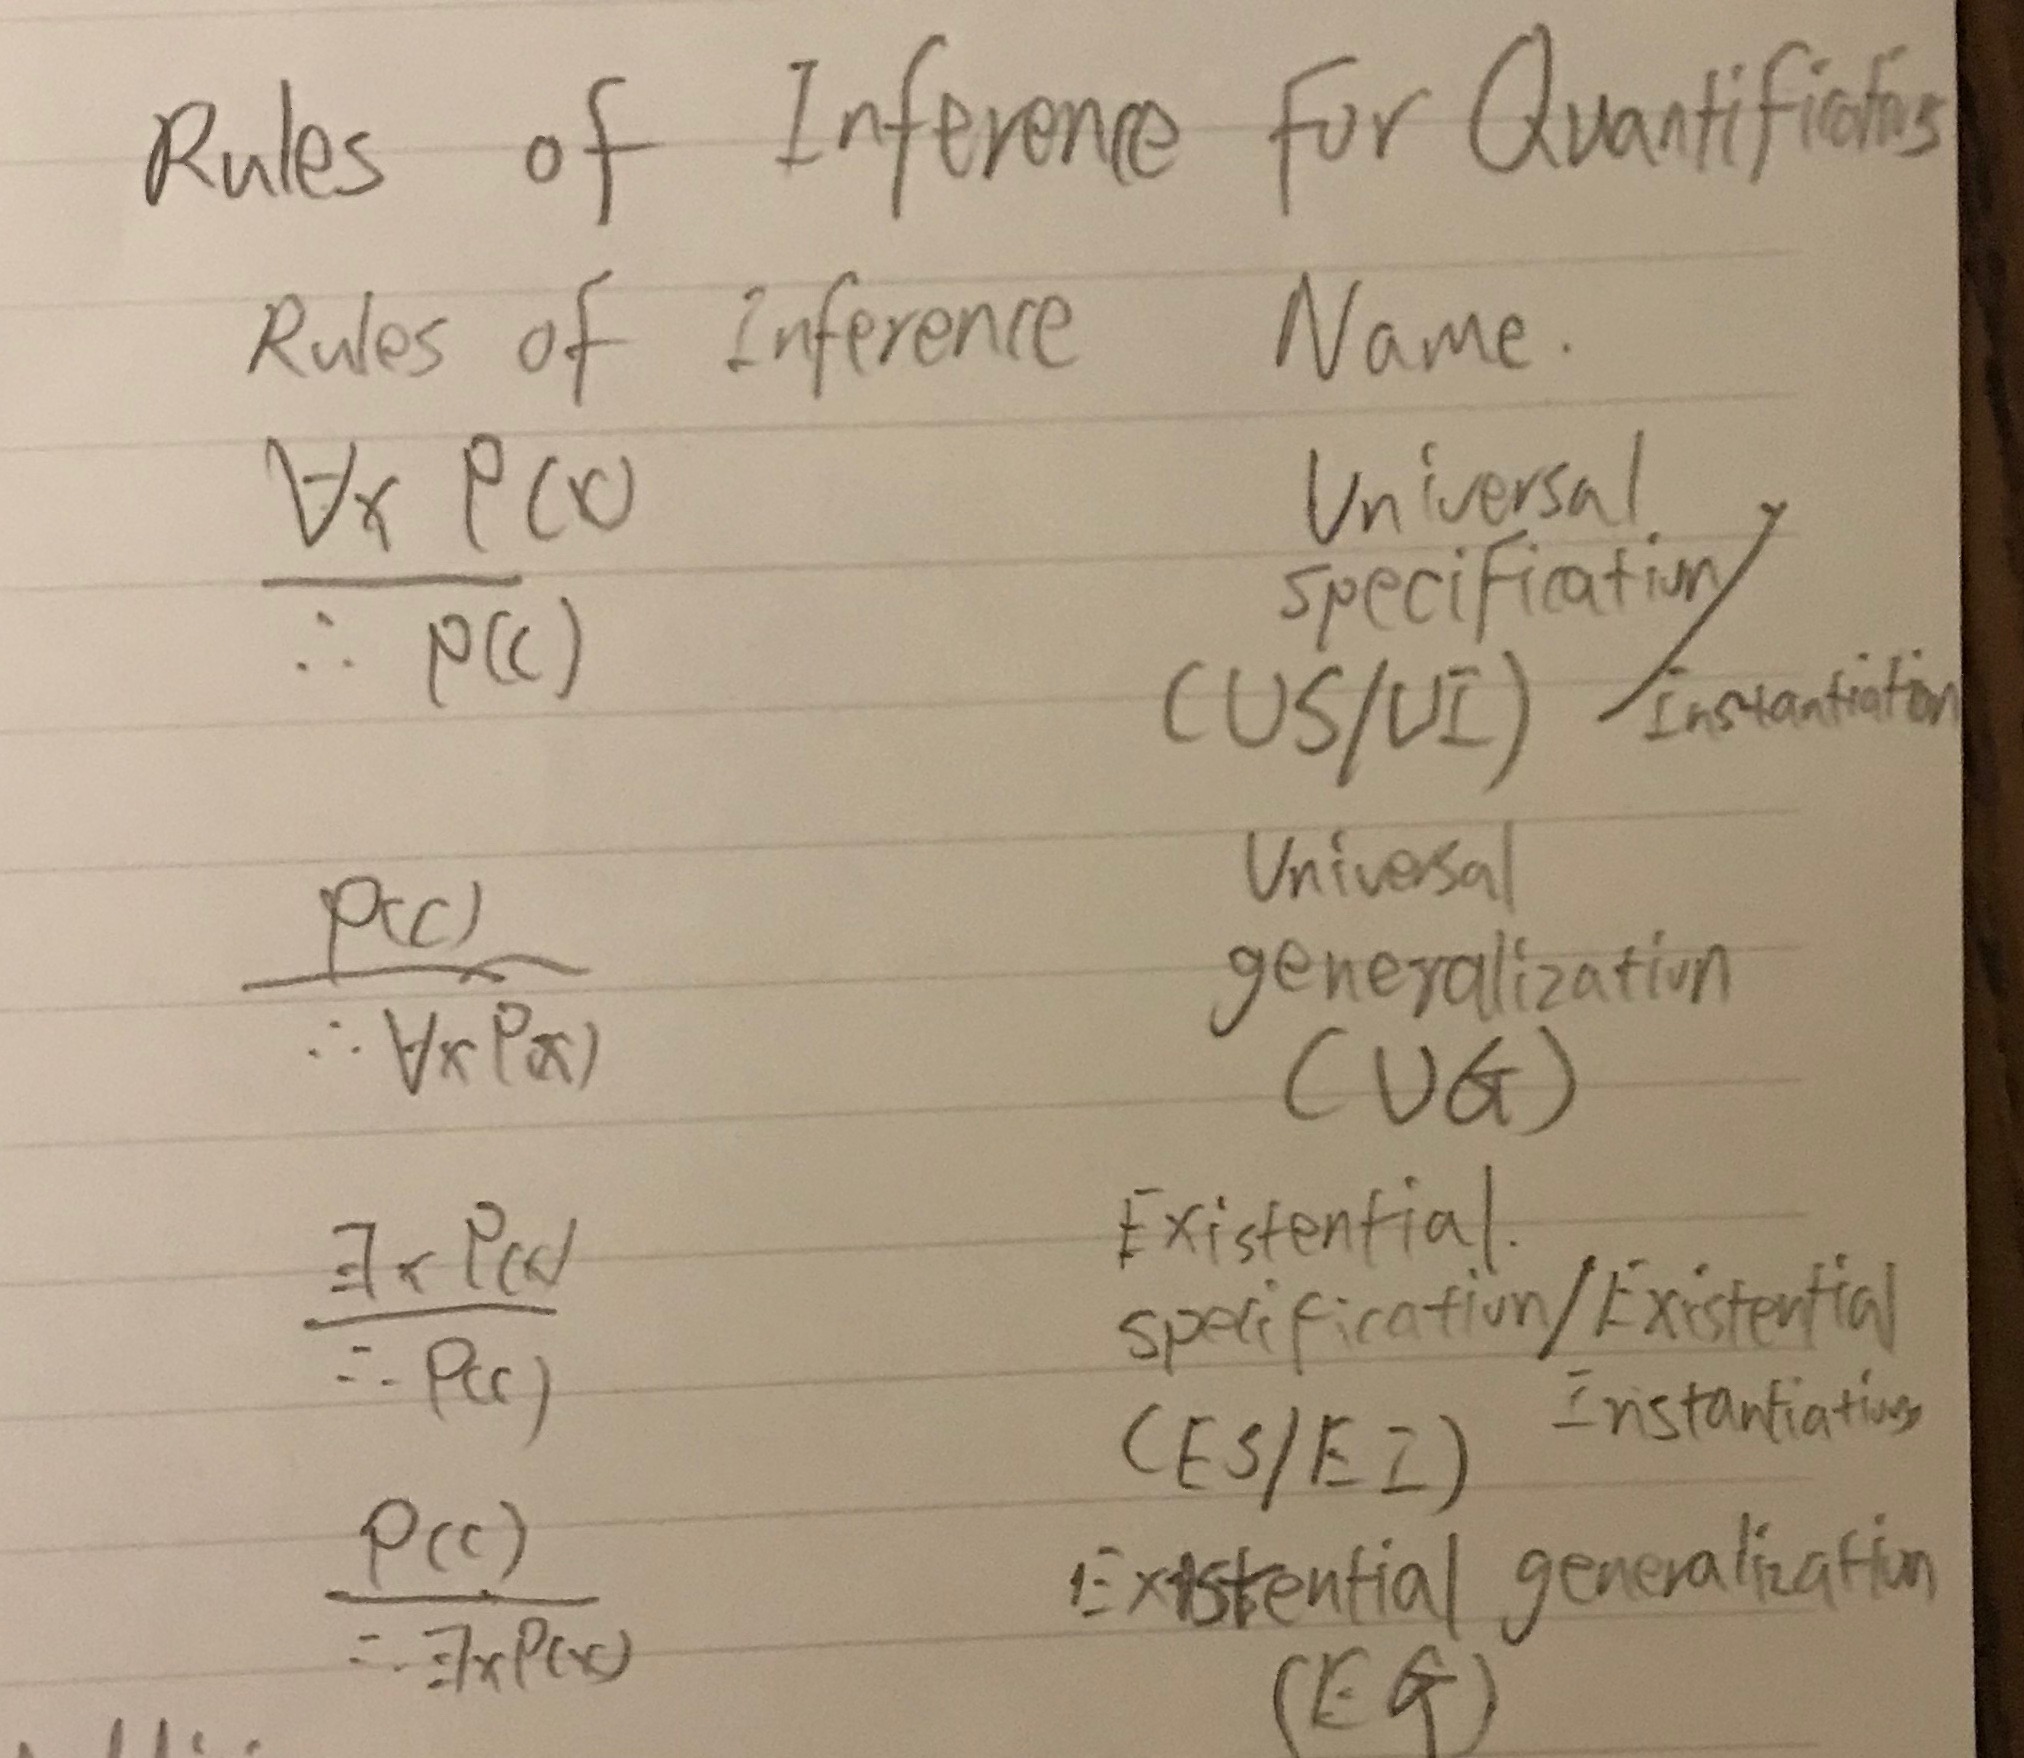 Rules of Inference for Quantifications
Rules of Inference Name.
∀x P(x)
∴ P(c)
Universal
specification /
(US/UI) Instantiation
P(c)
∴ ∀x P(x)
Universal
generalization
(UG)
∃x P(x)
∴ P(c)
Existential.
specification / Existential
Instantiation
(ES/EI)
P(c)
∴ ∃x P(x)
Existential generalization
(EG)